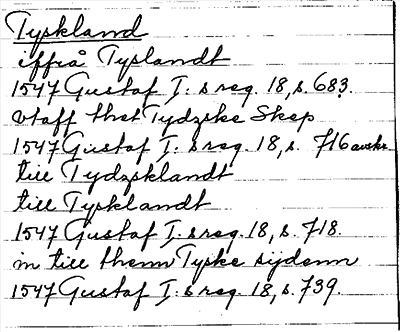 Tyskland
iffrå Tyslandt
1547 Gustaf I: s reg. 18, s. 683.
vtaff thet Tydzske Skep
1547 Gustaf I: s reg. 18, s. 716 avskr.
till Tydzsklandt
till Tysklandt
1547 Gustaf I: s reg. 18, s. 718.
in till thenn Tyske sijdenn
1547 Gustaf I: s reg. 18, s. 739.